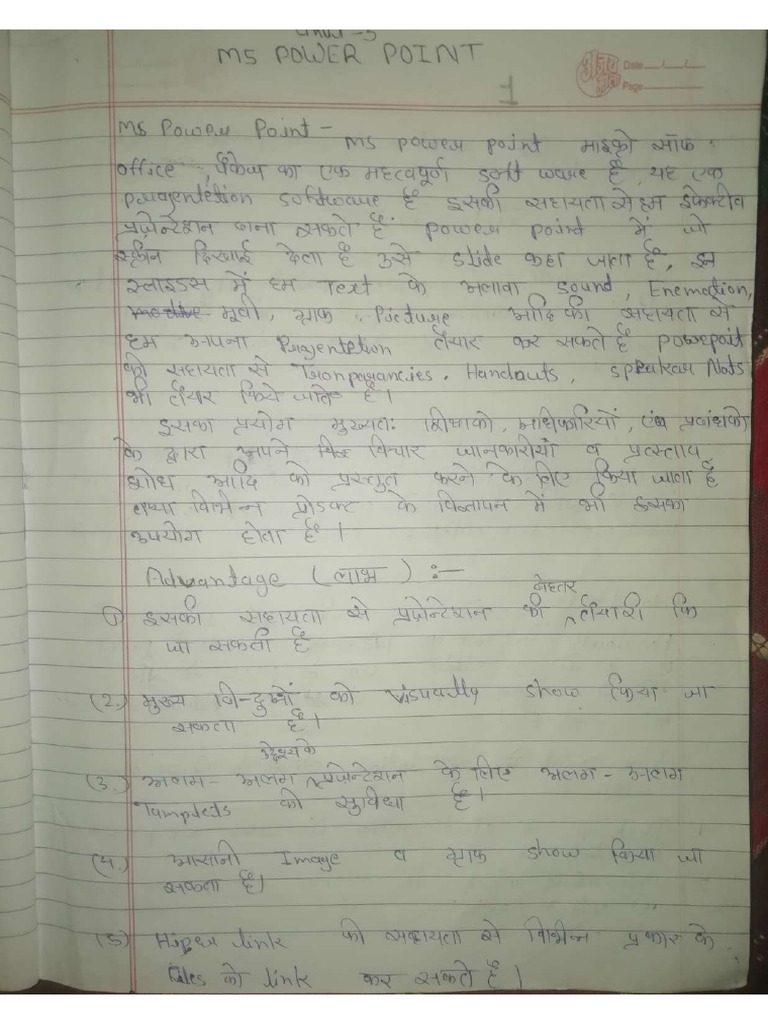 Unit-3
MS POWER POINT
Date
Page
1
MS Power Point -
MS power point माइक्रो सॉफ
office , पैकेज का एक महत्वपूर्ण soft ware है, यह एक
software है इसकी सहायता से हम इफेक्टीव
प्रजेन्टेशन बना सकते हैं. power point में जो
स्क्रीन दिखाई देता है उसे slide कहा जाता है, इन
स्लाइडस में हम Text के अलावा sound, Enemation,
मूवी, ग्राफ, Picture आदि की सहायता से
हम अपना Pragentetion तैयार कर सकते है powepoit
की सहायता से Handouts, Nots
भी तैयार किये जाते है।
इसका प्रयोग मुख्यतः शिक्षाको, अधिकारियों, एंव प्रबंधको
के द्वारा अपने विचार जानकारीयाँ व प्रस्ताव
शोध आदि को प्रस्तुत करने के लिए किया जाता है
तथा विभिन्न प्रोडक्ट के विज्ञापन में भी इसका
उपयोग होता है ।
Advantage (लाभ) :-
① इसकी सहायता से प्रजेन्टेशन की बेहतर तैयारी कि
जा सकती है
(2.) मुख्य बिन्दुओं को show किया जा
सकता है।
(3.) अलग - अलग उद्देश्य के प्रजेन्टेशन के लिए अलग - अलग
Tamplets की सुविधा है।
(4.) आसानी Image व ग्राफ show किया जा
सकता है।
(5) Hiper link की सहायता से विभिन्न प्रकार के
files को link कर सकते है।